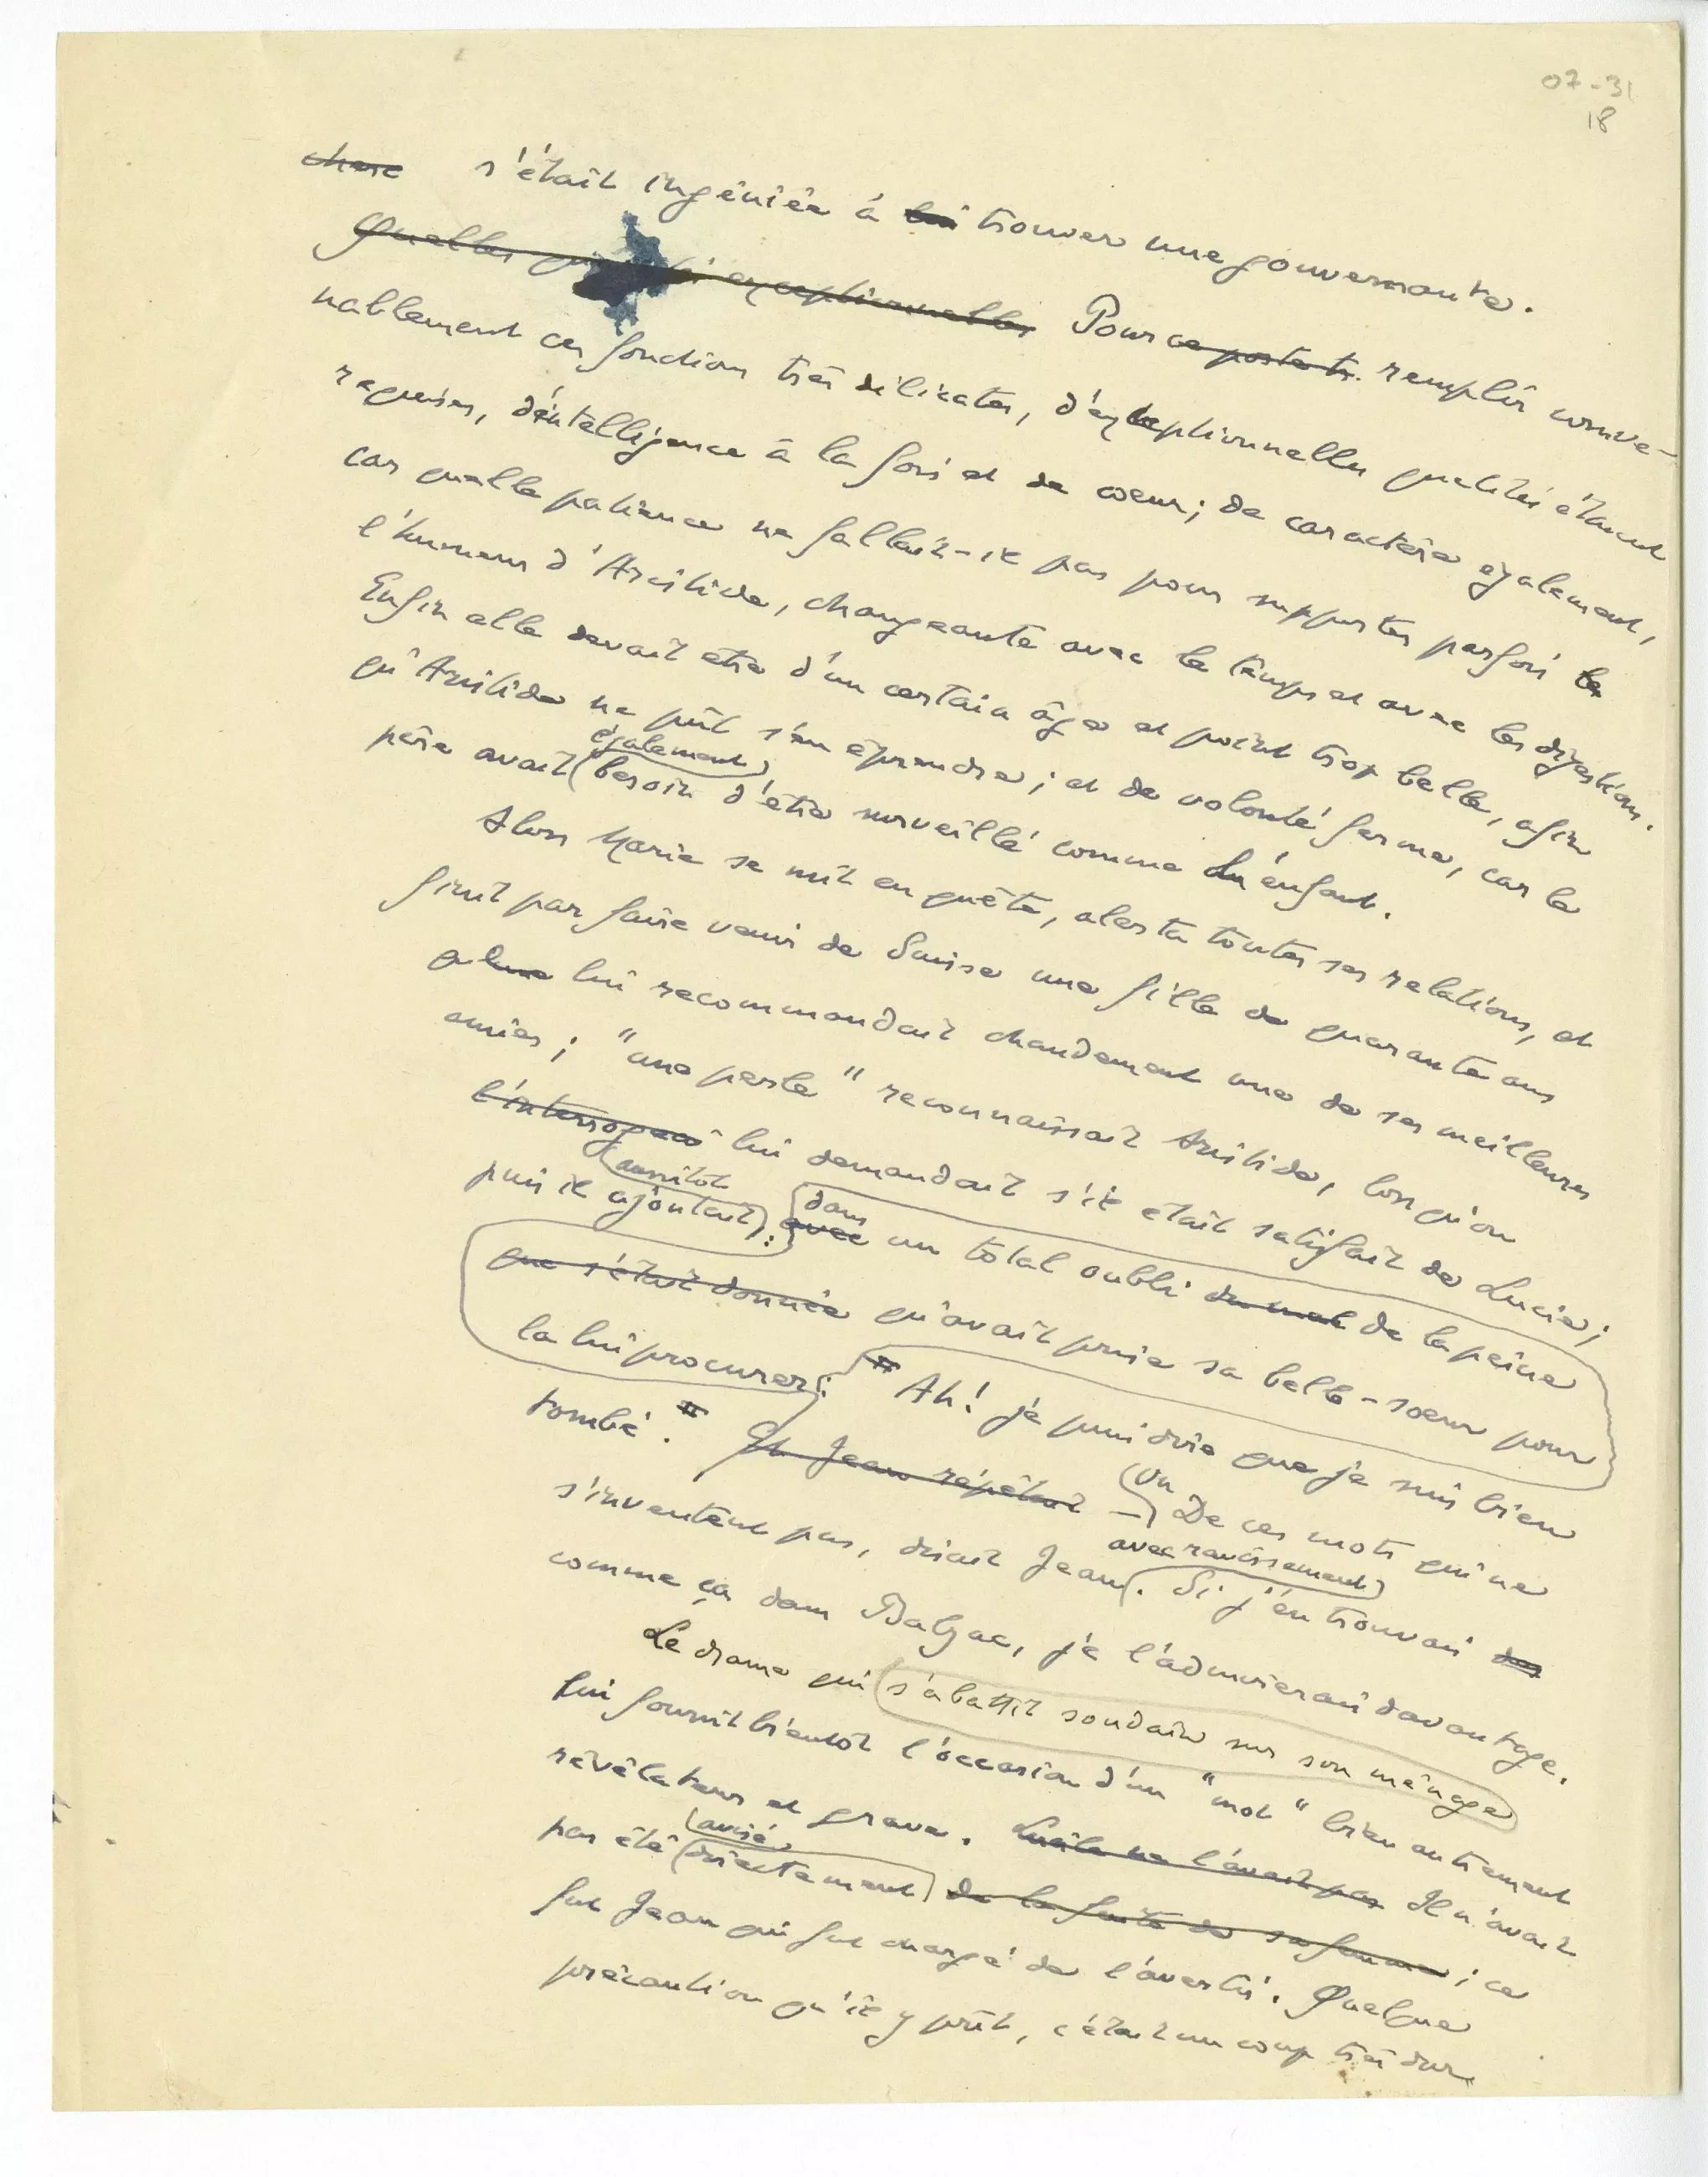 07-31
18
chose s'était ingéniée à lui trouver une gouvernante.
Quelles exceptionnelles Pour ce poste tr. remplir conve-
nablement ces fonctions très délicates, d'exceptionnelles qualités étaient
requises, d'intelligence à la fois et de cœur; de caractère également,
car quelle patience ne fallait-il pas pour supporter parfois la
l'humeur d'Aristide, changeante avec le temps et avec les digestions.
Enfin elle devait être d'un certain âge et point trop belle, afin
qu'Aristide ne pût s'en éprendre; et de volonté ferme, car le
également
père avait besoin d'être surveillé comme un enfant.
Alors Marie se mit en quête, alerta toutes ses relations, et
finit par faire venir de Suisse une fille de quarante ans
que lui recommandait chaudement une de ses meilleures
amies; "une perle" reconnaissait Aristide, lorsqu'on
l'interrogeait lui demandait s'il était satisfait de Lucie;
aussitôt dans
puis il ajoutait, : avec un total oubli du mal de la peine
que s'était donnée qu'avait prise sa belle-sœur pour
la lui procurer: " Ah! je puis dire que je suis bien
tombé. " Et Jean répétait – On De ces mots qui ne
s'inventent pas, disait Jean. Si j'en trouvais des
avec ravissement
comme ça dans Balzac, je l'admirerais davantage.
Le drame qui s'abattit soudain sur son ménage
lui fournit bientôt l'occasion d'un "mot" bien autrement
révélateur et grave. Lucile ne l'avait pas Il n'avait
avisé
pas été directement de la fuite de sa femme ; ce
fut Jean qui fut chargé de l'avertir. Quelque
précaution qu'il y prît, c'était un coup très dur,